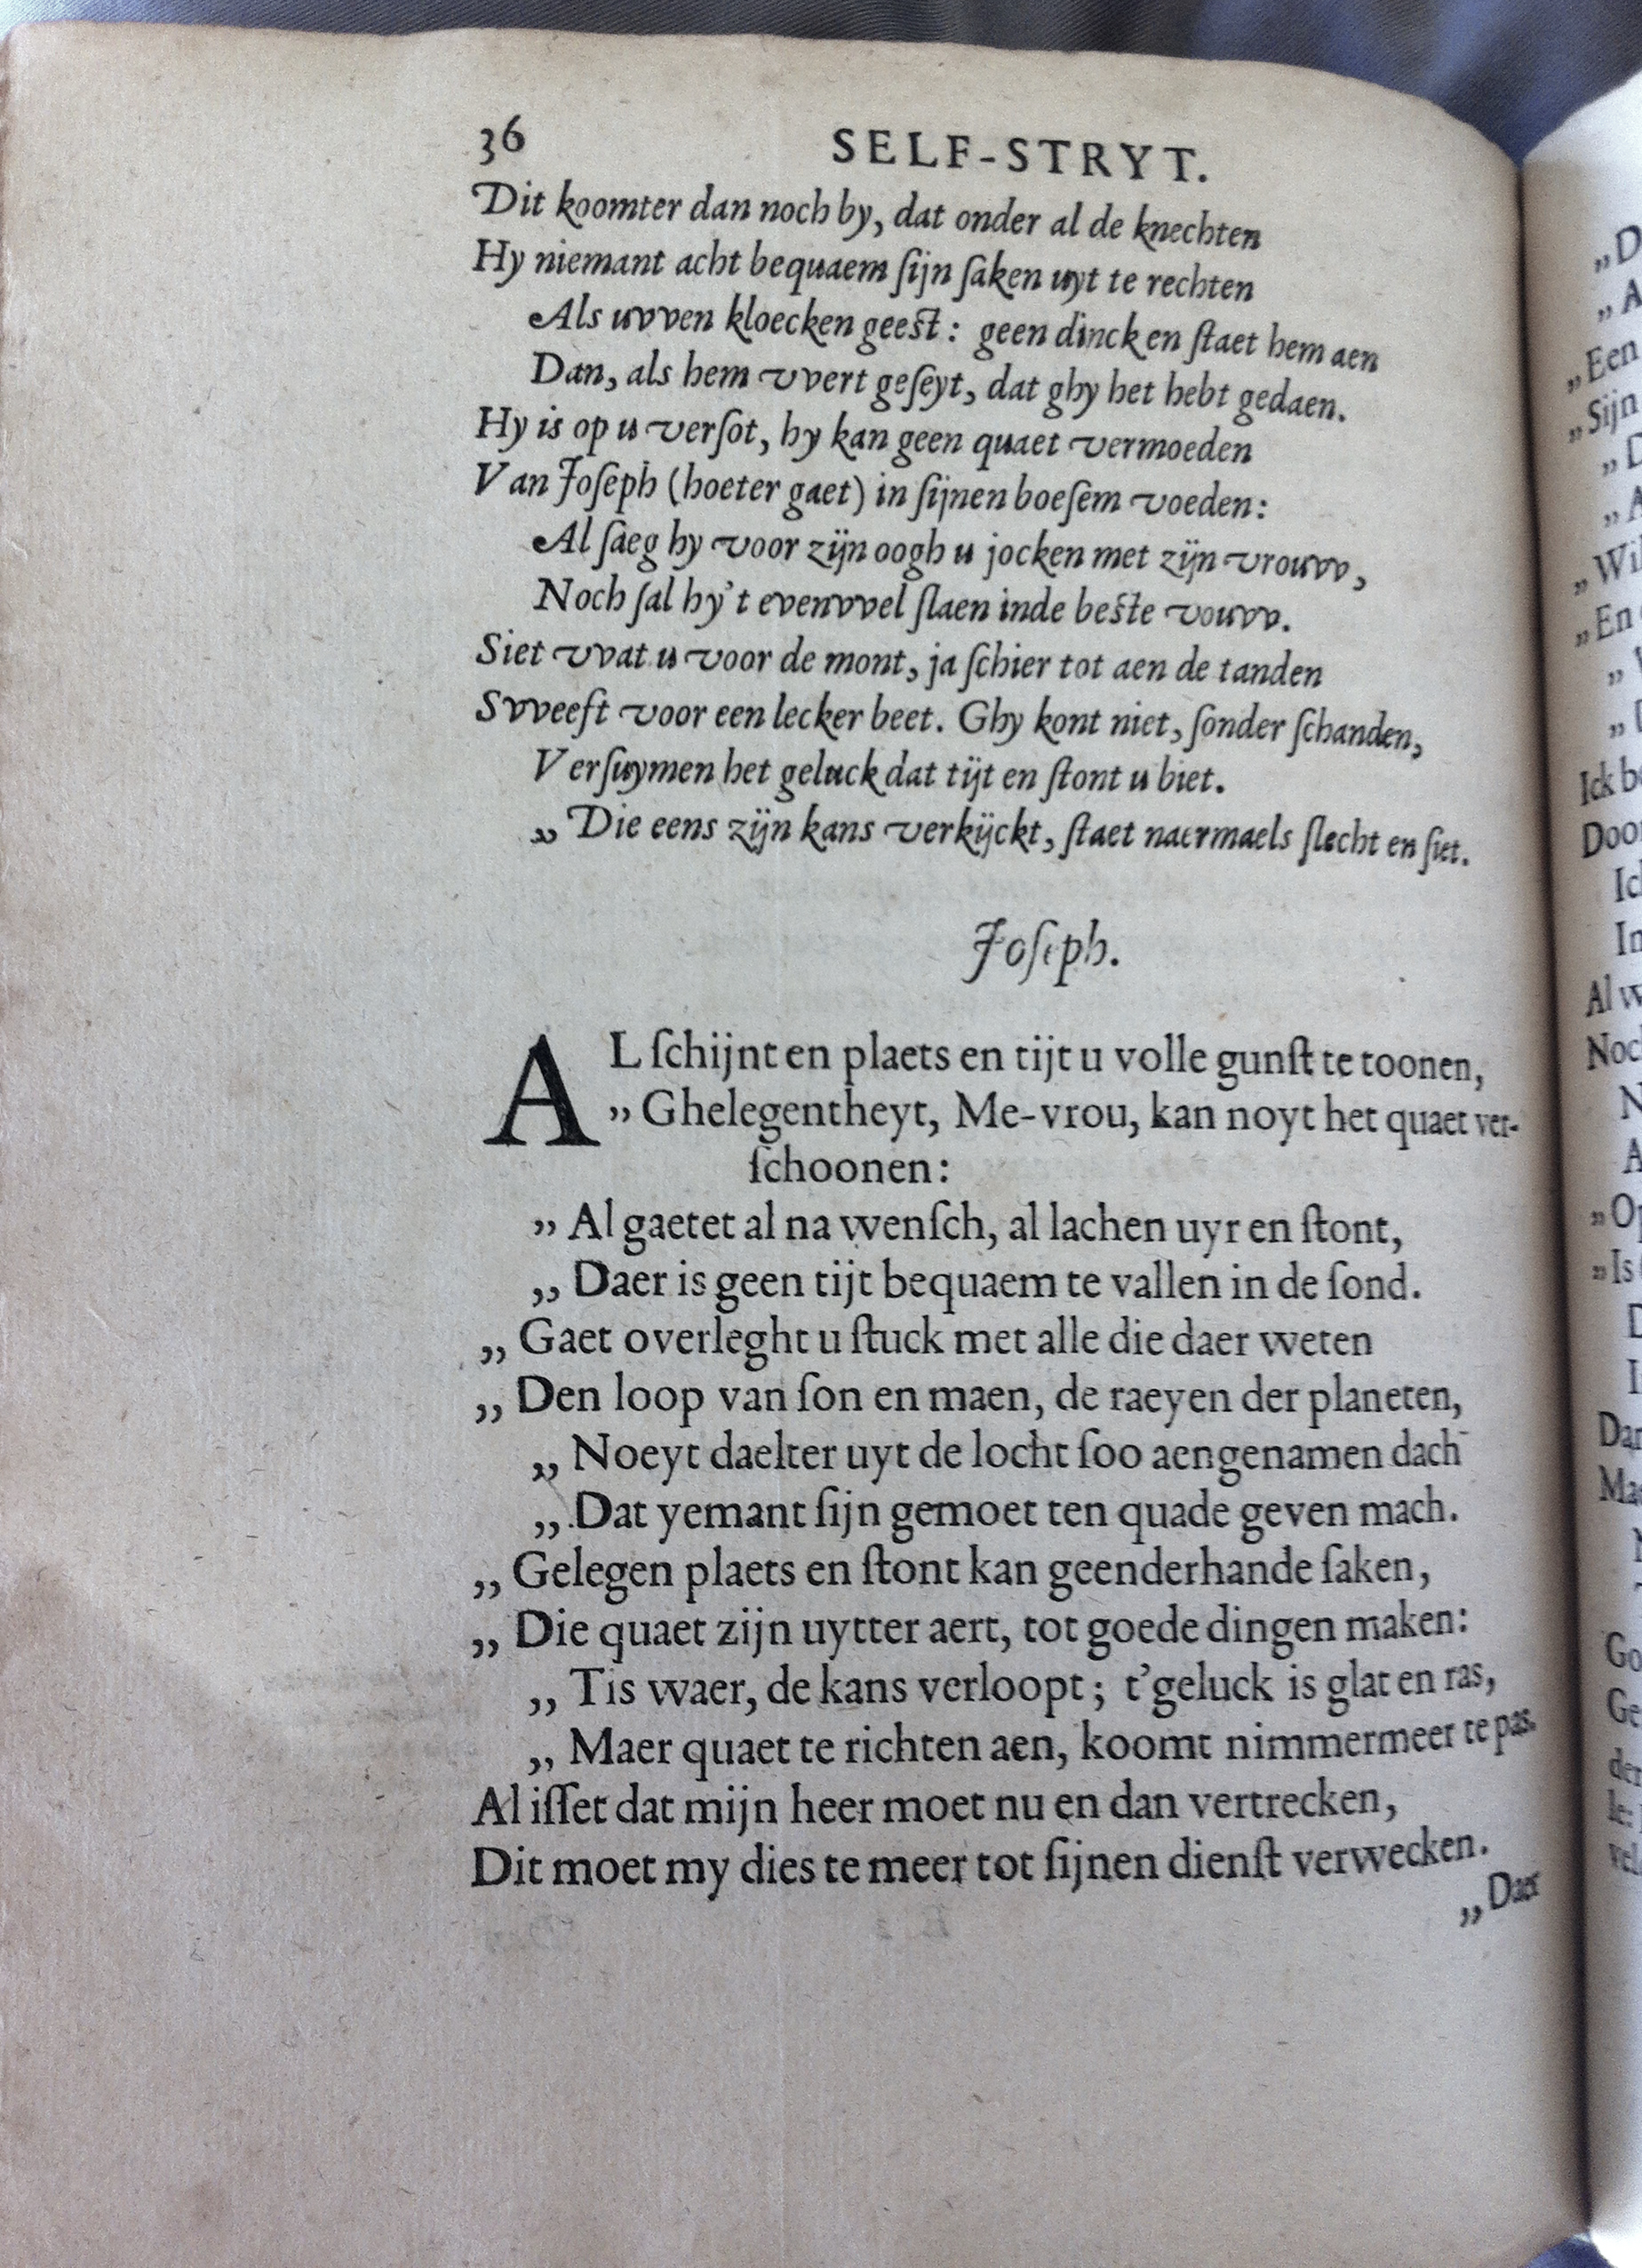 36 SELF-STRYT.
Dit koomter dan noch by, dat onder al de knechten
Hy niemant acht bequaem ſijn ſaken uyt te rechten
Als uvven kloecken geest: geen dinck en ſtaet hem aen
Dan, als hem vvert geſeyt, dat ghy het hebt gedaen.
Hy is op u verſot, hy kan geen quaet vermoeden
Van Joſeph (hoeter gaet) in ſijnen boeſem voeden:
Al ſaeg hy voor zijn oogh u jocken met zijn vrouvv,
Noch ſal hy't evenvvel ſlaen inde beste vouvv.
Siet vvat u voor de mont, ja ſchier tot aen de tanden
Svveeft voor een lecker beet. Ghy kont niet, ſonder ſchanden,
Verſuymen het geluck dat tijt en ſtont u biet.
„ Die eens zijn kans verkijckt, ſtaet naermaels ſlecht en ſiet.
Joſeph.
AL ſchijnt en plaets en tijt u volle gunſt te toonen,
„ Ghelegentheyt, Me-vrou, kan noyt het quaet ver-
ſchoonen:
„ Al gaetet al na wenſch, al lachen uyr en ſtont,
„ Daer is geen tijt bequaem te vallen in de ſond.
„ Gaet overleght u ſtuck met alle die daer weten
„ Den loop van ſon en maen, de raeyen der planeten,
„ Noeyt daelter uyt de locht ſoo aengenamen dach
„ Dat yemant ſijn gemoet ten quade geven mach.
„ Gelegen plaets en ſtont kan geenderhande ſaken,
„ Die quaet zijn uytter aert, tot goede dingen maken:
„ Tis waer, de kans verloopt; t'geluck is glat en ras,
„ Maer quaet te richten aen, koomt nimmermeer te pas.
Al iſſet dat mijn heer moet nu en dan vertrecken,
Dit moet my dies te meer tot ſijnen dienſt verwecken.
„ Daer
„ Een
„ Sijn
„ En